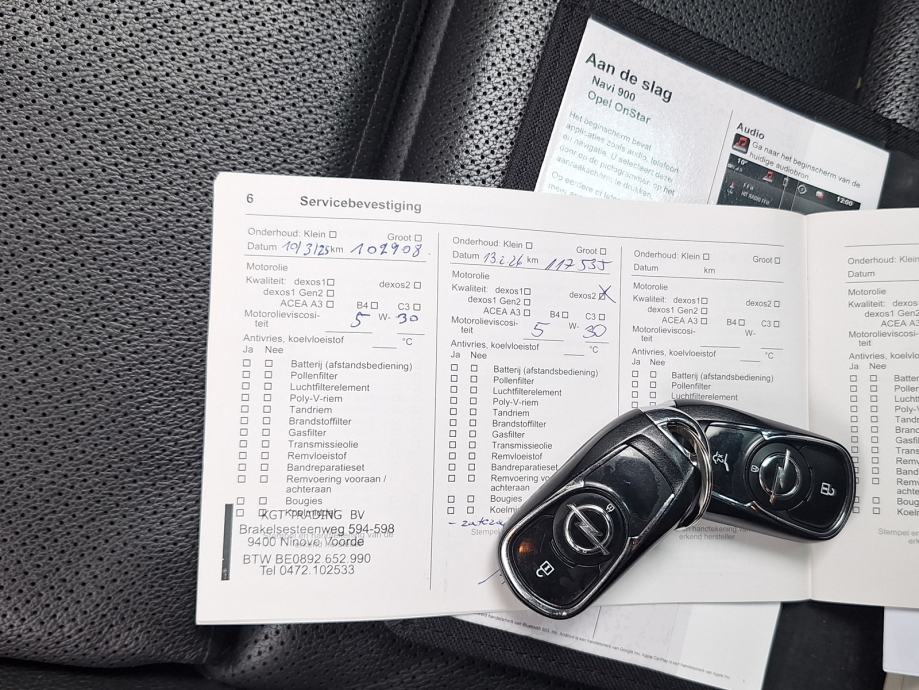 Aan de slag
Navi 900
Opel OnStar
Het beginscherm bevat
applicaties zoals audio, telefoon
en navigatie. U selecteert deze
door op de pictogrammen op het
Audio
Ga naar het beginscherm van de
huidige audiobron.
12:00
6 Servicebevestiging
Onderhoud: Klein ☐ Groot ☐
Datum 10/3/25 km 102908
Motorolie
Kwaliteit: dexos1 ☐ dexos2 ☐
dexos1 Gen2 ☐
ACEA A3 ☐ B4 ☐ C3 ☐
Motorolieviscosi-
teit 5 W- 30
Antivries, koelvloeistof ____ °C
Ja Nee
☐ ☐ Batterij (afstandsbediening)
☐ ☐ Pollenfilter
☐ ☐ Luchtfilterelement
☐ ☐ Poly-V-riem
☐ ☐ Tandriem
☐ ☐ Brandstoffilter
☐ ☐ Gasfilter
☐ ☐ Transmissieolie
☐ ☐ Remvloeistof
☐ ☐ Bandreparatieset
☐ ☐ Remvoering vooraan /
achteraan
☐ ☐ Bougies
KGT TRADING BV
Brakelsesteenweg 594-598
9400 Ninove Voorde
BTW BE0892.652.990
Tel 0472.102533
Onderhoud: Klein ☐ Groot ☐
Datum 13 2 26 km 117535
Motorolie
Kwaliteit: dexos1 ☐ dexos2 ☒
dexos1 Gen2 ☐
ACEA A3 ☐ B4 ☐ C3 ☐
Motorolieviscosi-
teit 5 W- 30
Antivries, koelvloeistof ____ °C
Ja Nee
☐ ☐ Batterij (afstandsbediening)
☐ ☐ Pollenfilter
☐ ☐ Luchtfilterelement
☐ ☐ Poly-V-riem
☐ ☐ Tandriem
☐ ☐ Brandstoffilter
☐ ☐ Gasfilter
☐ ☐ Transmissieolie
☐ ☐ Remvloeistof
☐ ☐ Bandreparatieset
☐ ☐ Remvoering
achteraan
☐ ☐ Bougies
☐ ☐ Koelmi
Stempel
Onderhoud: Klein ☐ Groot ☐
Datum km
Motorolie
Kwaliteit: dexos1 ☐ dexos2 ☐
dexos1 Gen2 ☐
ACEA A3 ☐ B4 ☐ C3 ☐
Motorolieviscosi-
teit W-
Antivries, koelvloeistof ____ °C
Ja Nee
☐ ☐ Batterij (afstandsbediening)
☐ ☐ Pollenfilter
☐ ☐ Luchtfilterelement
handtekening
erkend hersteller
Onderhoud: Klein
Datum
Motorolie
Kwaliteit: dexos1
dexos1 Gen2
ACEA A3
Motorolieviscosi-
teit
Antivries, koelvloeistof
Ja Nee
☐ ☐ Batterij
☐ ☐ Pollen
☐ ☐ Lucht
☐ ☐ Poly-
☐ ☐ Tand
☐ ☐ Brand
☐ ☐ Gasf
☐ ☐ Trans
☐ ☐ Rem
☐ ☐ Band
☐ ☐ Rem
achte
☐ ☐ Boug
☐ ☐ Koel
Stempel en